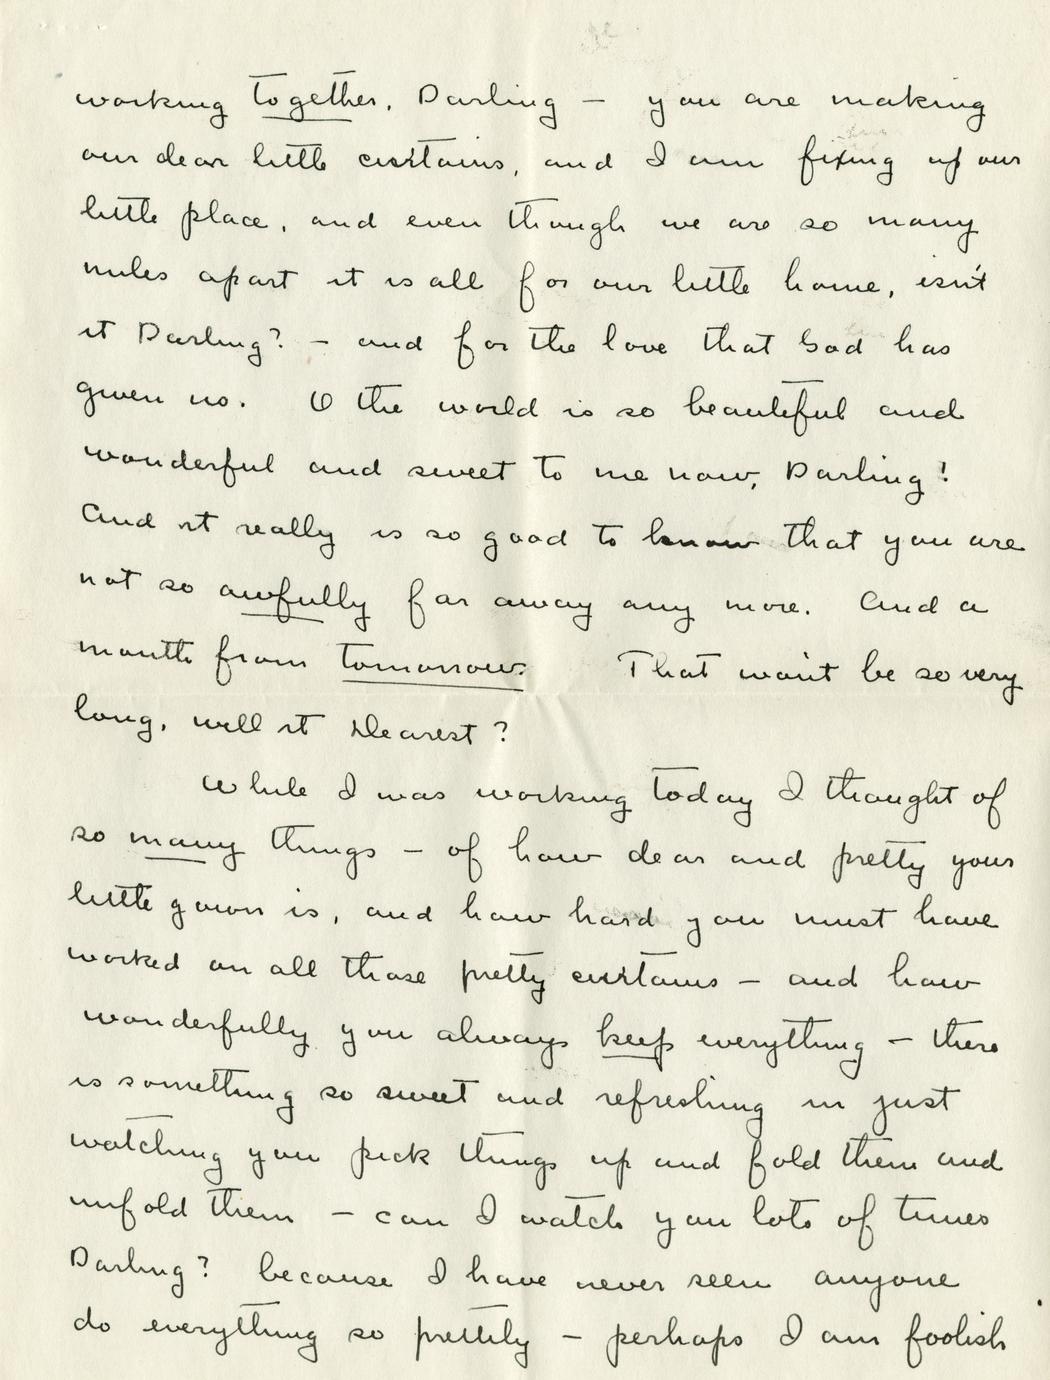 working together, Darling — you are making
our dear little curtains, and I am fixing up our
little place, and even though we are so many
miles apart it is all for our little home, isn't
it Darling? — and for the love that God has
given us. O the world is so beautiful and
wonderful and sweet to me now, Darling!
And it really is so good to know that you are
not so awfully far away any more. And a
month from tomorrow. That won't be so very
long, will it Dearest?
While I was working today I thought of
so many things — of how dear and pretty your
little gown is, and how hard you must have
worked on all those pretty curtains — and how
wonderfully you always keep everything — there
is something so sweet and refreshing in just
watching you pick things up and fold them and
unfold them — can I watch you lots of times
Darling? because I have never seen anyone
do everything so prettily — perhaps I am foolish